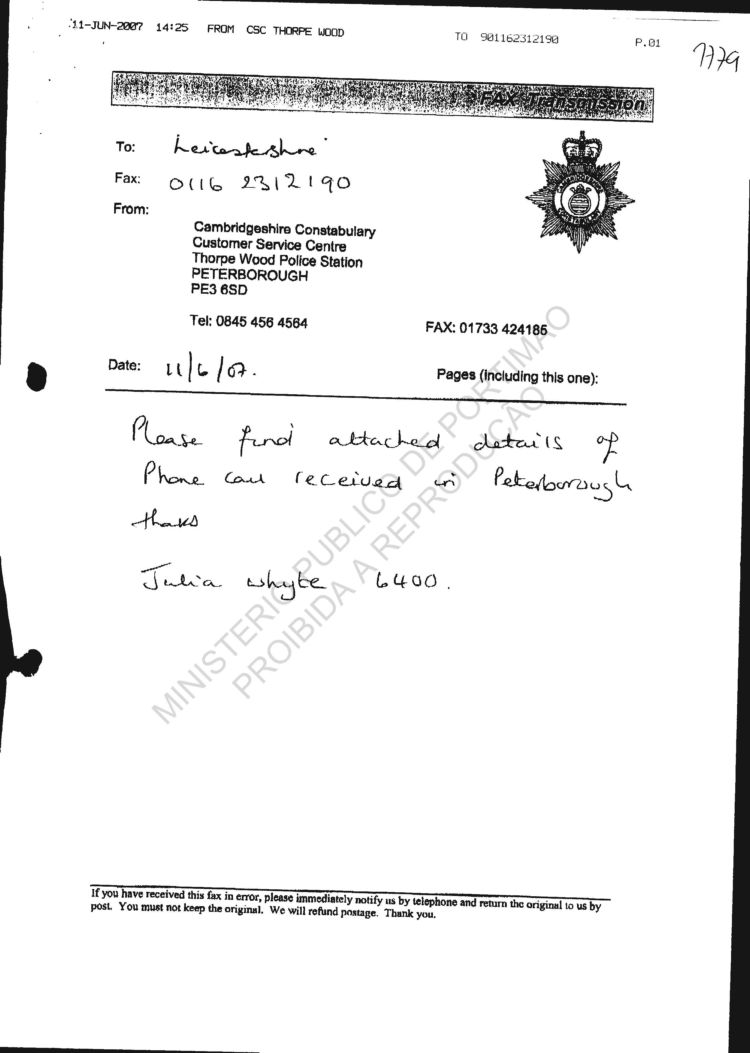 11-JUN-2007 14:25 FROM CSC THORPE WOOD TO 901162312190 P.01
7779
FAX Transmission
To: Leicestershire
Fax: 0116 2312190
From:
CAMBRIDGESHIRE
CONSTABULARY
Cambridgeshire Constabulary
Customer Service Centre
Thorpe Wood Police Station
PETERBOROUGH
PE3 6SD
Tel: 0845 456 4564 FAX: 01733 424185
Date: 11/6/07. Pages (including this one):
Please find attached details of
Phone call received in Peterborough
thanks
Julia Whyte 6400.
MINISTERIO PUBLICO DE PORTIMAO
PROIBIDA A REPRODUÇÃO
If you have received this fax in error, please immediately notify us by telephone and return the original to us by
post. You must not keep the original. We will refund postage. Thank you.